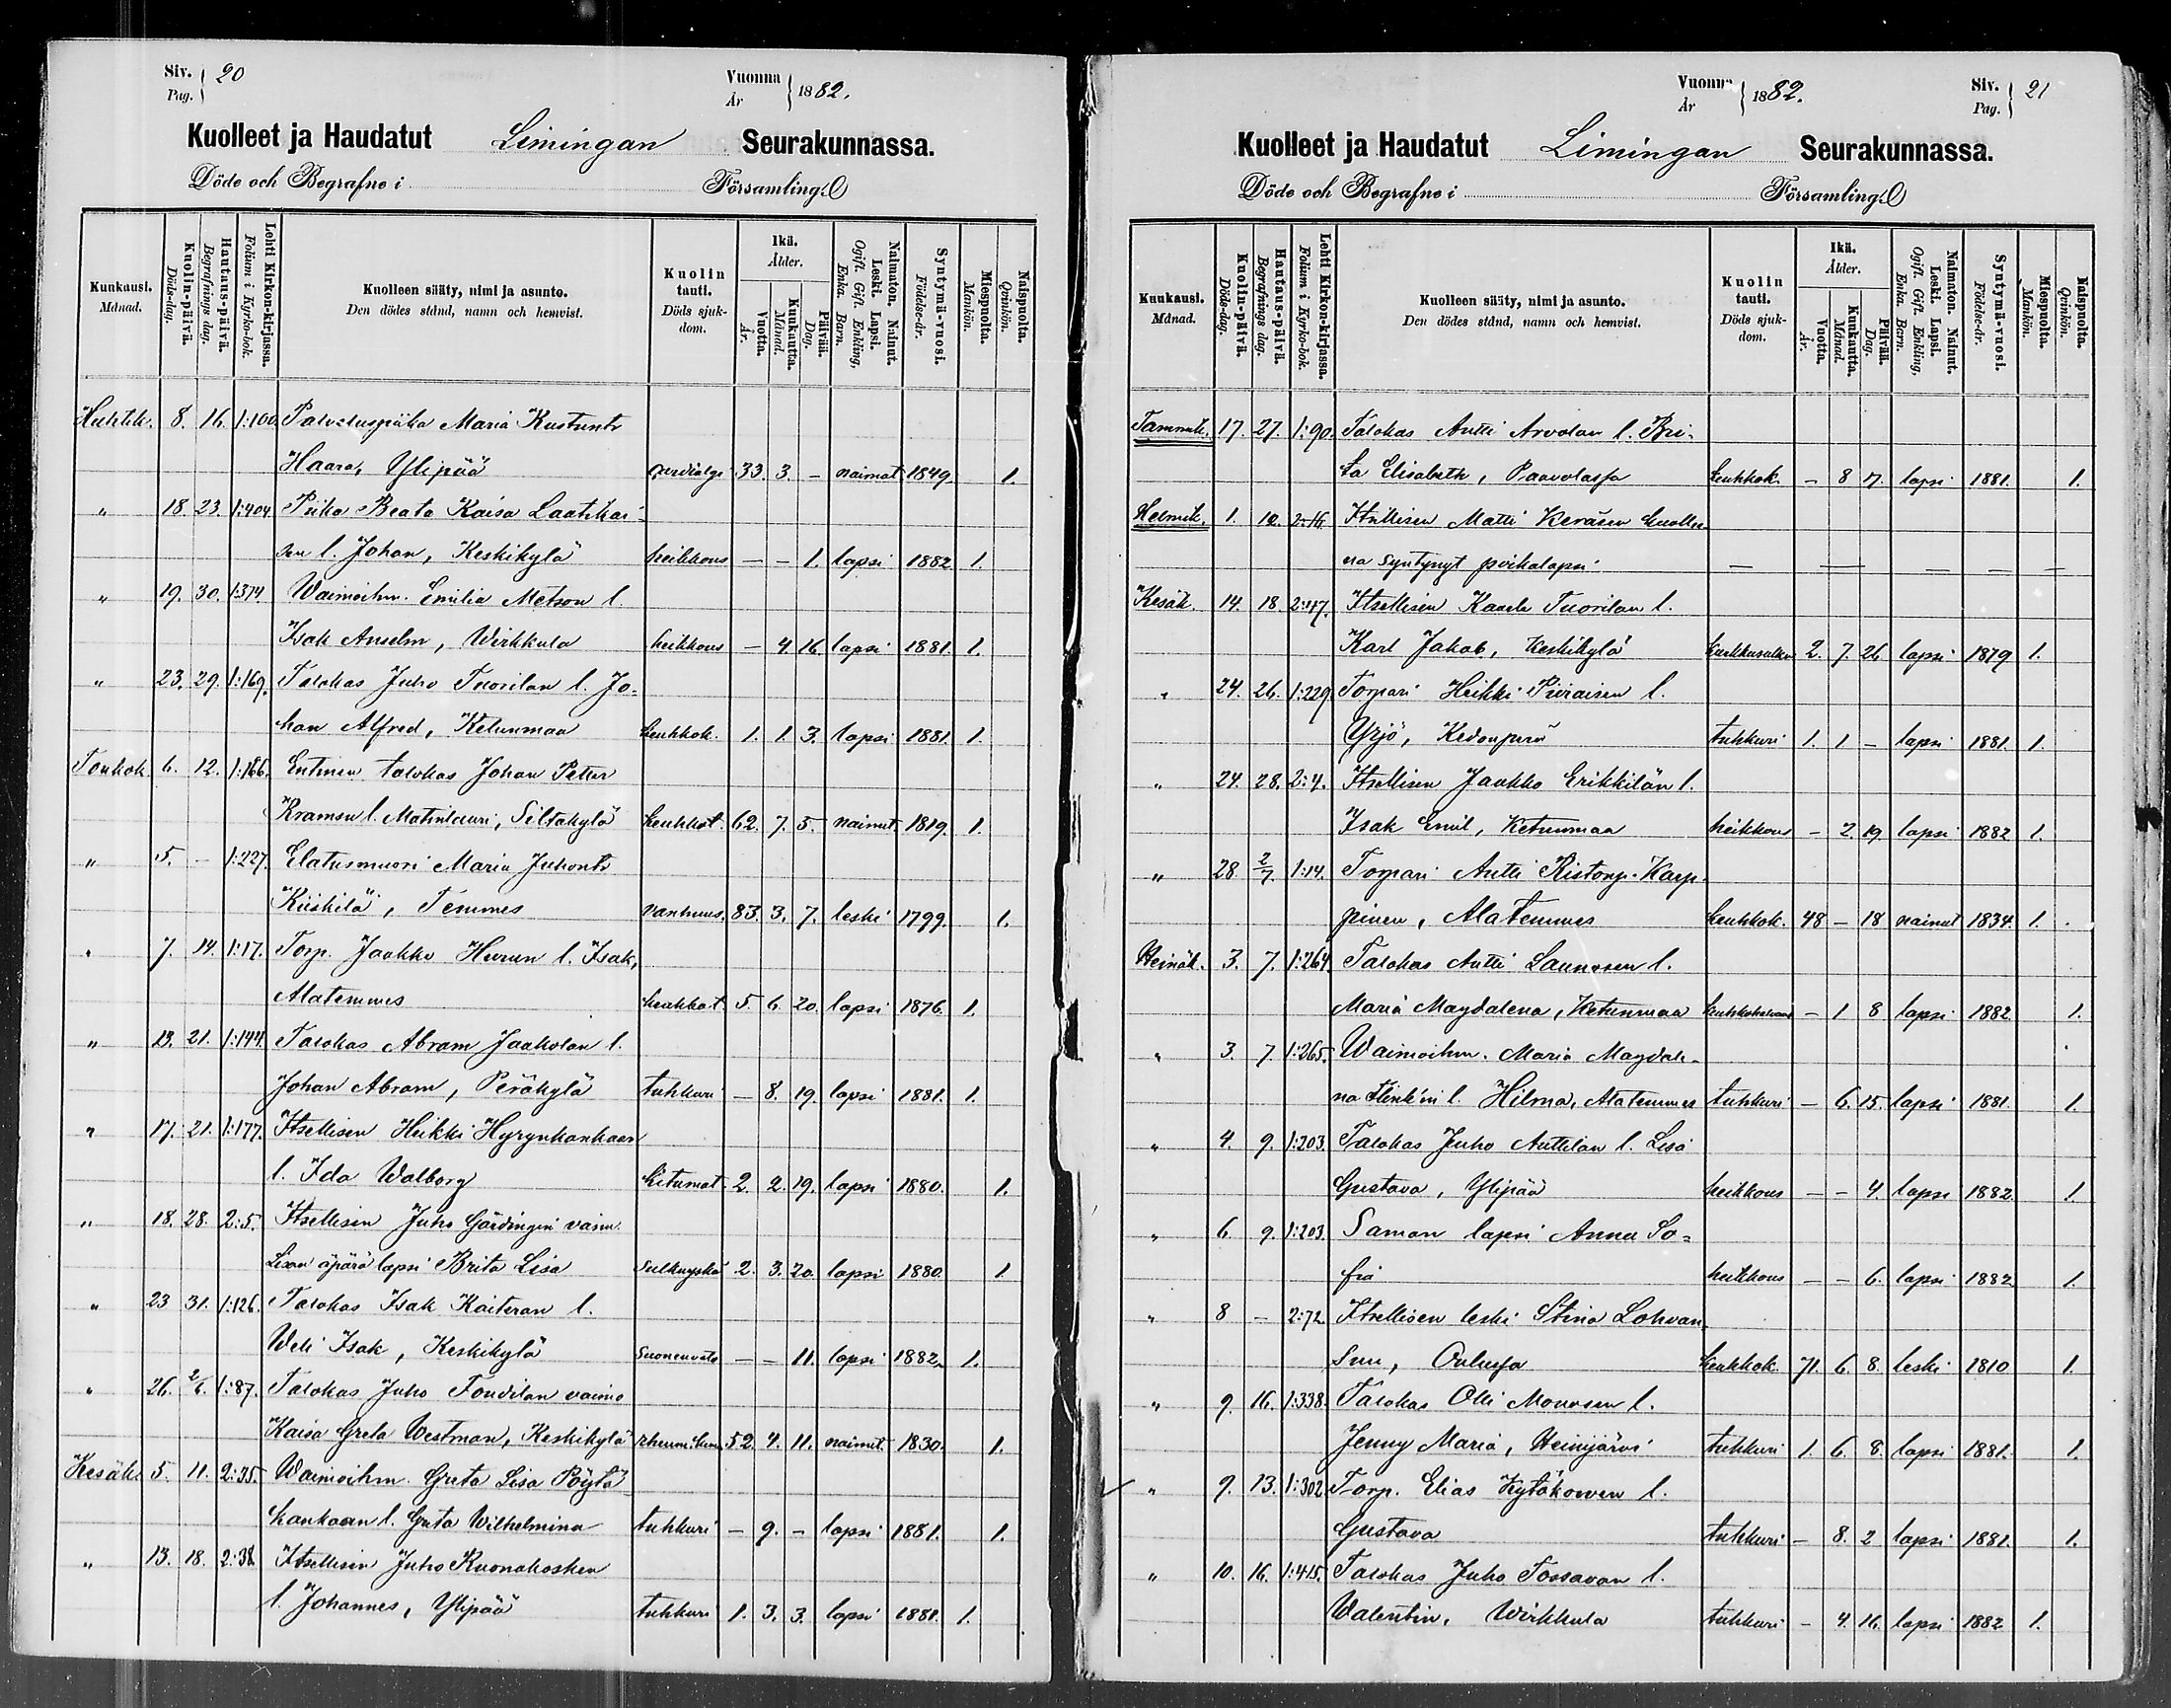 Siv. Pag. 20
Vuonna År 1882.
Kuolleet ja Haudatut Limingan Seurakunnassa.
Döde och Begrafne i Församling.
Kuukausi. Månad.
Kuolin-päivä. Döds-dag.
Hautaus-päivä. Begrafnings dag.
Lehti Kirkon-kirjassa. Folium i Kyrko-bok.
Kuolleen sääty, nimi ja asunto.
Den dödes stånd, namn och hemvist.
Kuolin tauti. Döds sjukdom.
Ikä. Ålder.
Vuotta. År.
Kuukautta. Månad.
Päivää. Dag.
Naimaton. Nainut. Leski. Lapsi.
Ogift. Gift. Enkling, Enka. Barn.
Syntymä-vuosi. Födelse-år.
Miespuolta. Mankön.
Naispuolta. Qvinkön.
Huhtik. 8. 16. 1:100. Palveluspiika Maria Kustunts
Haara, Ylipää 33. 3. – naimat. 1849. 1.
„ 18. 23. 1:404 Piika Beata Kaisa Laatikai-
sen l. Johan, Keskikylä heikkous – – 1. lapsi 1882 1.
„ 19. 30. 1:374. Waimoihm. Emilia Metson l.
Isak Anselm, Wirkkula heikkous – 4. 16. lapsi 1881. 1.
„ 23. 29. 1:169. Talokas Juho Tuorilan l. Jo-
han Alfred, Ketunmaa keuhkok. 1. 1. 3. lapsi 1881. 1.
Toukok. 6. 12. 1:166. Entinen talokas Johan Petter
Kramsu l. Matinlauri, Siltakylä keuhkot. 62. 7. 5. nainut. 1819. 1.
„ 5. – 1:227. Elatusmuori Maria Juhonts
Kiiskilä, Temmes vanhuus. 83. 3. 7. leski 1799. 1.
„ 7. 14. 1:17. Torp. Jaakko Hurun l. Isak,
Alatemmes keuhkot. 5. 6. 20. lapsi 1876. 1.
„ 13. 21. 1:144. Talokas Abram Jaakolan l.
Johan Abram, Peräkylä tuhkuri – 8. 19. lapsi 1881. 1.
„ 17. 21. 1:177. Itsellisen Heikki Hyrynkankaan
l. Ida Walborg kitumat. 2. 2. 19. lapsi 1880. 1.
„ 18. 28. 2:5. Itsellisen Juho Gärdingin vaim.
Lisan äpärä lapsi Brita Lisa 2. 3. 20. lapsi 1880. 1.
„ 23 31. 1:126. Talokas Isak Kaiteran l.
Weli Isak, Keskikylä suonenveto – – 11. lapsi 1882. 1.
„ 26. 2/6. 1:87. Talokas Juho Foudilan vaimo
Kaisa Greta Westman, Keskikylä 52. 4. 11. nainut. 1830. 1.
Kesäk. 5. 11. 2:35. Waimoihm. Greta Lisa Pöytä-
kankaan l. Greta Wilhelmina tuhkuri – 9. – lapsi 1881. 1.
„ 13. 18. 2:38. Itsellisen Juho Ruonakosken
l. Johannes, Ylipää tuhkuri 1. 3. 3. lapsi 1881. 1.
Vuonna År 1882.
Siv. Pag. 21
Kuolleet ja Haudatut Limingan Seurakunnassa.
Döde och Begrafne i Församling.
Kuukausi. Månad.
Kuolin-päivä. Döds-dag.
Hautaus-päivä. Begrafnings dag.
Lehti Kirkon-kirjassa. Folium i Kyrko-bok.
Kuolleen sääty, nimi ja asunto.
Den dödes stånd, namn och hemvist.
Kuolin tauti. Döds sjukdom.
Ikä. Ålder.
Vuotta. År.
Kuukautta. Månad.
Päivää. Dag.
Naimaton. Nainut. Leski. Lapsi.
Ogift. Gift. Enkling, Enka. Barn.
Syntymä-vuosi. Födelse-år.
Miespuolta. Mankön.
Naispuolta. Qvinkön.
Tammik. 17. 27. 1:90. Talokas Antti Arvolan l. Bri-
ta Elisabeth, Paavolassa keuhkok. – 8 17. lapsi 1881. 1.
Helmik. 1. 12. 2:16. Itsellisen Matti Keräsen kuollee-
na syntynyt poikalapsi – – – – –
Kesäk. 14. 18. 2:47. Itsellisen Kaarle Tuorilan l.
Karl Jakob, Keskikylä 2. 7. 26 lapsi 1879 1.
„ 24. 26. 1:229. Torpari Heikki Piiraisen l.
Yrjö, Kedonperä tuhkuri 1. 1 – lapsi 1881. 1.
„ 24. 28. 2:4. Itsellisen Jaakko Erikkilän l.
Isak Emil, Ketunmaa heikkous – 2. 19. lapsi 1882 1.
„ 28. 2/7. 1:14. Torpari Antti Ristonp. Karp-
pinen, Alatemmes keuhkok. 48 – 18 nainut 1834. 1.
Heinäk. 3. 7. 1:264 Talokas Antti Launosen l.
Maria Magdalena, Ketunmaa – 1 8 lapsi 1882. 1.
„ 3. 7. 1:265. Waimoihm. Maria Magdale-
na l. Hilma, Alatemmes tuhkuri – 6. 15. lapsi 1881. 1.
„ 4. 9. 1:203. Talokas Juho Anttilan l. Lisa
Gustava, Ylipää heikkous – – 4. lapsi 1882. 1
„ 6. 9. 1:203. Saman lapsi Anna So-
fia heikkous – – 6. lapsi 1882. 1.
„ 8 – 2:72. Itsellisen leski Stina Lohvan-
Suu, Oulussa keuhkok. 71. 6. 8. leski 1810 1.
„ 9. 16. 1:338. Talokas Olli Monosen l.
Jenny Maria, Heinijärvi tuhkuri 1. 6. 8. lapsi 1881. 1.
„ 9. 13. 1:302 Torp. Elias Kytökorven l.
Gustava tuhkuri – 8. 2 lapsi 1881. 1.
„ 10. 16. 1:415. Talokas Juho Tossavan l.
Walentin, Wirkkula tuhkuri – 4. 16. lapsi 1882 1.